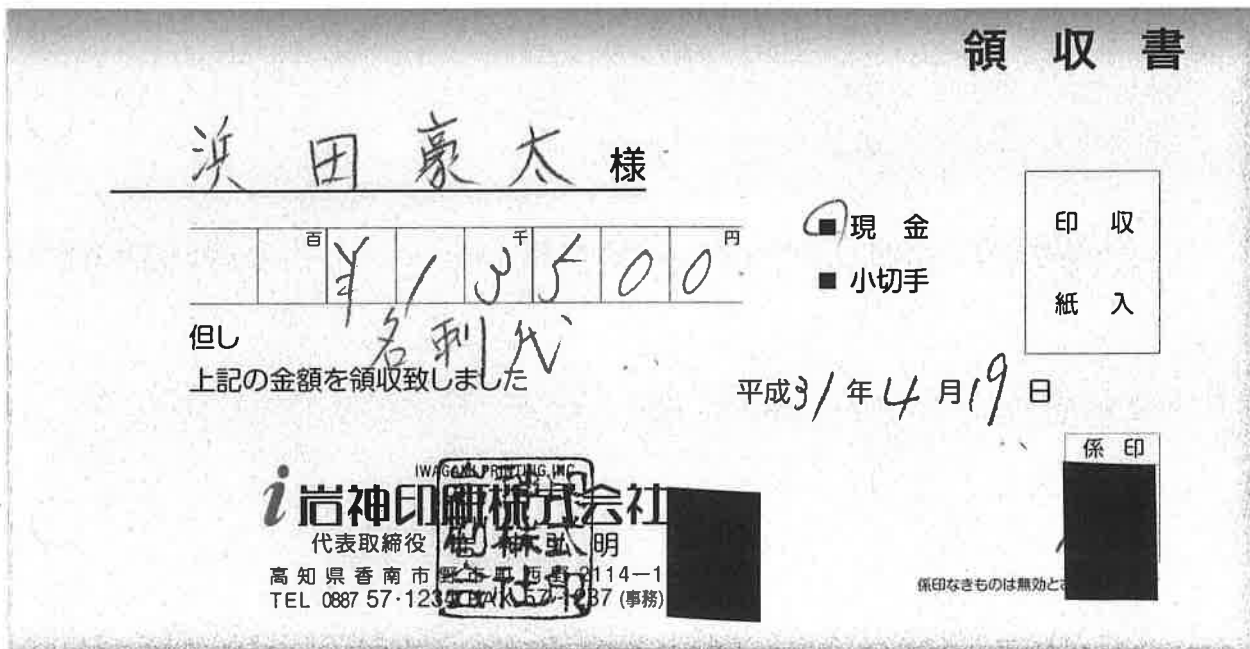 領 収 書
浜田豪太 様
百 千 円
¥13500
■ 現 金
■ 小切手
印 収
紙 入
但し 名刺代
上記の金額を領収致しました
平成31年4月19日
係 印
IWAGAMI PRINTING, INC.
i 岩神印刷株式会社
代表取締役 岩神弘明
高知県香南市野市町西野2114-1
TEL 0887 57·1234 FAX 57-1237 (事務)
係印なきものは無効と